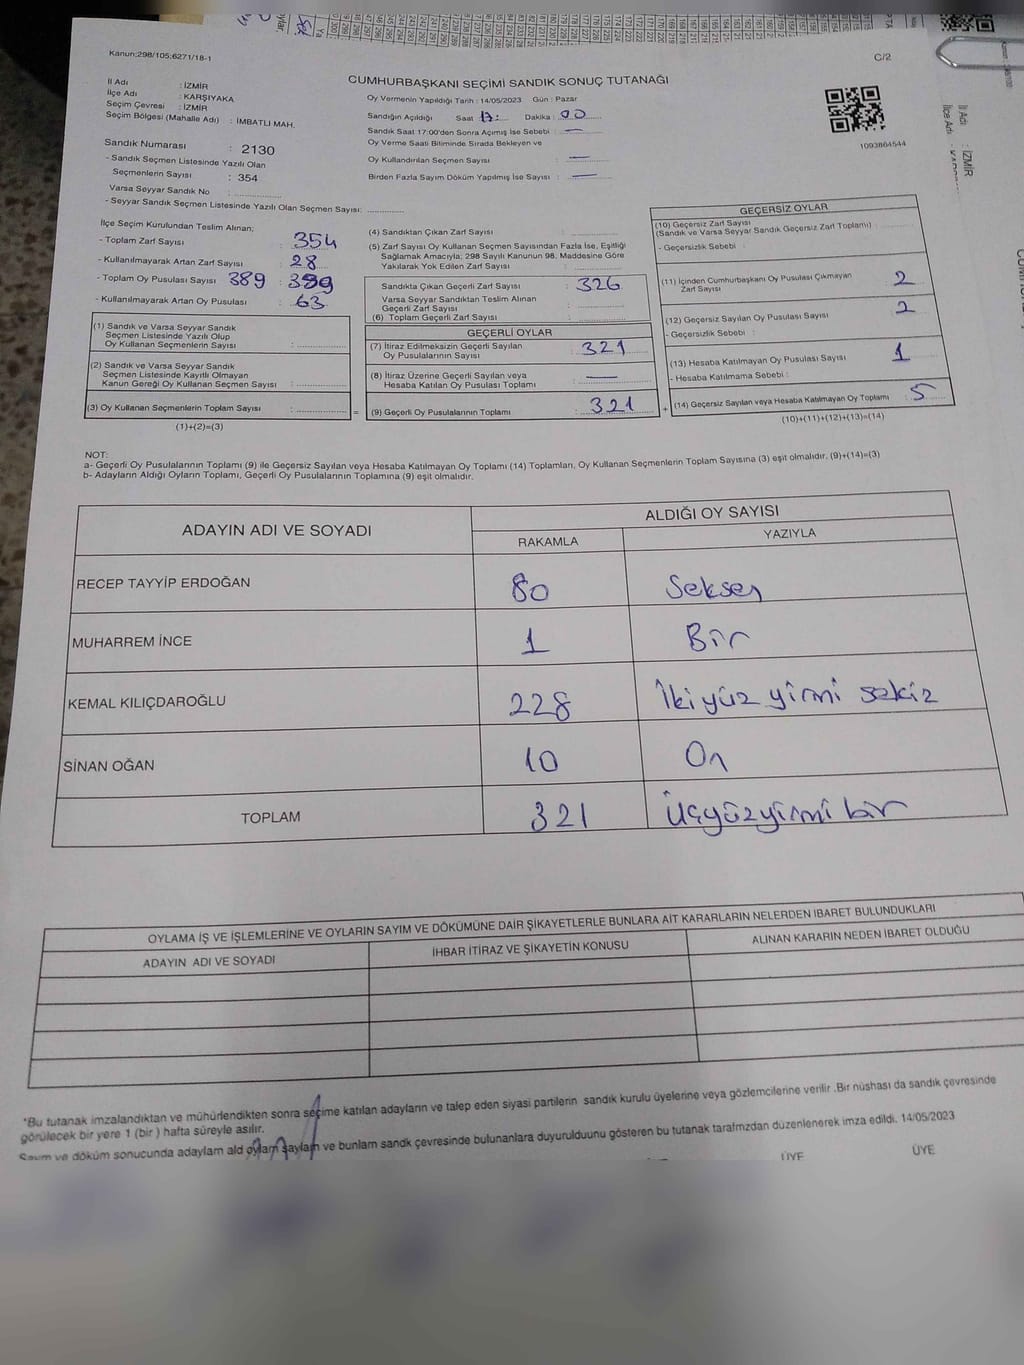 Kanun:298/105;6271/18-1
C/2
CUMHURBAŞKANI SEÇİMİ SANDIK SONUÇ TUTANAĞI
İl Adı : İZMİR
İlçe Adı : KARŞIYAKA
Seçim Çevresi : İZMİR
Seçim Bölgesi (Mahalle Adı) : İMBATLI MAH.
Sandık Numarası : 2130
- Sandık Seçmen Listesinde Yazılı Olan
Seçmenlerin Sayısı : 354
Varsa Seyyar Sandık No :
- Seyyar Sandık Seçmen Listesinde Yazılı Olan Seçmen Sayısı:
Oy Vermenin Yapıldığı Tarih : 14/05/2023 Gün : Pazar
Sandığın Açıldığı Saat 17: Dakika : 00
Sandık Saat 17:00'den Sonra Açımış İse Sebebi : —
Oy Verme Saati Bitiminde Sırada Bekleyen ve
Oy Kullandırılan Seçmen Sayısı : —
Birden Fazla Sayım Döküm Yapılmış İse Sayısı : —
1093864544
İlçe Seçim Kurulundan Teslim Alınan;
- Toplam Zarf Sayısı : 354
- Kullanılmayarak Artan Zarf Sayısı : 28
- Toplam Oy Pusulası Sayısı 389 : 389
- Kullanılmayarak Artan Oy Pusulası : 63
(1) Sandık ve Varsa Seyyar Sandık
Seçmen Listesinde Yazılı Olup
Oy Kullanan Seçmenlerin Sayısı :
(2) Sandık ve Varsa Seyyar Sandık
Seçmen Listesinde Kayıtlı Olmayan
Kanun Gereği Oy Kullanan Seçmen Sayısı :
(3) Oy Kullanan Seçmenlerin Toplam Sayısı : =
(1)+(2)=(3)
(4) Sandıktan Çıkan Zarf Sayısı :
(5) Zarf Sayısı Oy Kullanan Seçmen Sayısından Fazla İse, Eşitliği
Sağlamak Amacıyla; 298 Sayılı Kanunun 98. Maddesine Göre
Yakılarak Yok Edilen Zarf Sayısı :
Sandıkta Çıkan Geçerli Zarf Sayısı : 326
Varsa Seyyar Sandıktan Teslim Alınan
Geçerli Zarf Sayısı :
(6) Toplam Geçerli Zarf Sayısı :
GEÇERLİ OYLAR
(7) İtiraz Edilmeksizin Geçerli Sayılan
Oy Pusulalarının Sayısı : 321
(8) İtiraz Üzerine Geçerli Sayılan veya
Hesaba Katılan Oy Pusulası Toplamı : —
(9) Geçerli Oy Pusulalarının Toplamı : 321 +
GEÇERSİZ OYLAR
(10) Geçersiz Zarf Sayısı
(Sandık ve Varsa Seyyar Sandık Geçersiz Zarf Toplamı)
- Geçersizlik Sebebi :
(11) İçinden Cumhurbaşkanı Oy Pusulası Çıkmayan
Zarf Sayısı : 2
(12) Geçersiz Sayılan Oy Pusulası Sayısı : 2
- Geçersizlik Sebebi :
(13) Hesaba Katılmayan Oy Pusulası Sayısı : 1
- Hesaba Katılmama Sebebi :
(14) Geçersiz Sayılan veya Hesaba Katılmayan Oy Toplamı : 5
(10)+(11)+(12)+(13)=(14)
NOT:
a- Geçerli Oy Pusulalarının Toplamı (9) ile Geçersiz Sayılan veya Hesaba Katılmayan Oy Toplamı (14) Toplamları, Oy Kullanan Seçmenlerin Toplam Sayısına (3) eşit olmalıdır. (9)+(14)=(3)
b- Adayların Aldığı Oyların Toplamı, Geçerli Oy Pusulalarının Toplamına (9) eşit olmalıdır.
ADAYIN ADI VE SOYADI
ALDIĞI OY SAYISI
RAKAMLA YAZIYLA
RECEP TAYYİP ERDOĞAN 80 Seksen
MUHARREM İNCE 1 Bir
KEMAL KILIÇDAROĞLU 228 İkiyüz yirmi sekiz
SİNAN OĞAN 10 On
TOPLAM 321 Üçyüzyirmi bir
OYLAMA İŞ VE İŞLEMLERİNE VE OYLARIN SAYIM VE DÖKÜMÜNE DAİR ŞİKAYETLERLE BUNLARA AİT KARARLARIN NELERDEN İBARET BULUNDUKLARI
ADAYIN ADI VE SOYADI İHBAR İTİRAZ VE ŞİKAYETİN KONUSU ALINAN KARARIN NEDEN İBARET OLDUĞU
*Bu tutanak imzalandıktan ve mühürlendikten sonra seçime katılan adayların ve talep eden siyasi partilerin sandık kurulu üyelerine veya gözlemcilerine verilir .Bir nüshası da sandık çevresinde
görülecek bir yere 1 (bir ) hafta süreyle asılır.
Sayım ve döküm sonucunda adayların ald oyların sayların ve bunların sandk çevresinde bulunanlara duyurulduunu gösteren bu tutanak tarafmzdan düzenlenerek imza edildi. 14/05/2023
ÜYE ÜYE